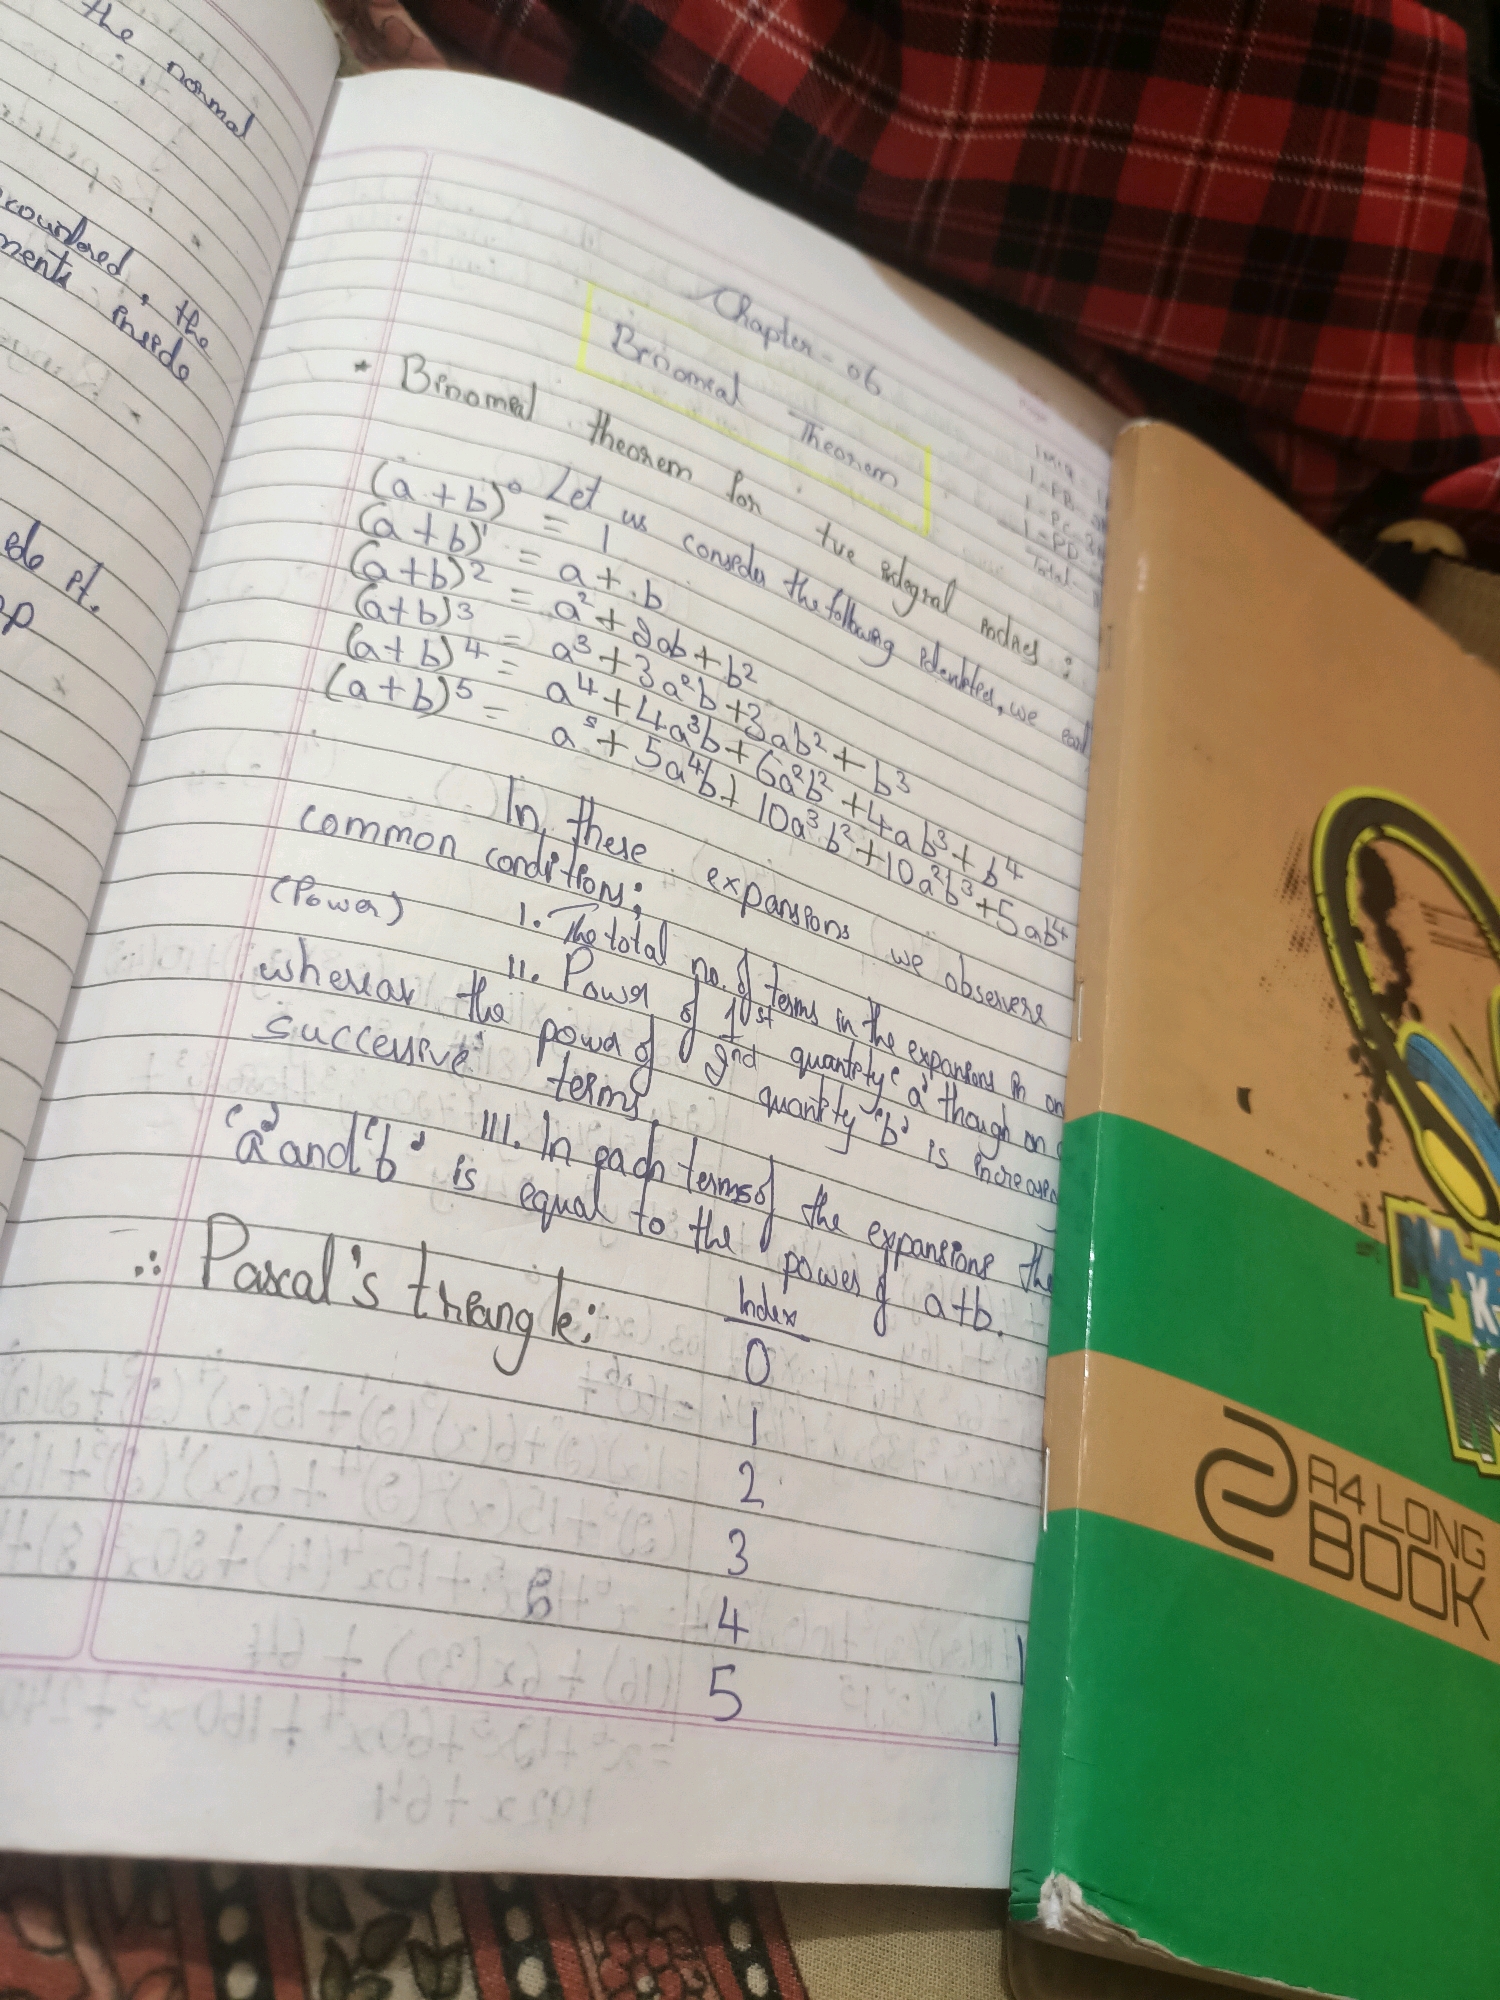 the normal
countered, the
ments inside
Chapter - 06
Binomial Theorem
* Binomial theorem for +ve integral indices :
Let us consider the following identities, we
(a+b)⁰ = 1
(a+b)¹ = a+b
(a+b)² = a² + 2ab + b²
(a+b)³ = a³ + 3a²b + 3ab² + b³
(a+b)⁴ = a⁴ + 4a³b + 6a²b² + 4ab³ + b⁴
(a+b)⁵ = a⁵ + 5a⁴b + 10a³b² + 10a²b³ + 5ab⁴
In these expansions we observe
common conditions;
I. The total no. of terms in the expansions in
(Power)
II. Power of 1st quantity 'a' though on
whereas the power of 2nd quantity 'b' is increased
successive terms
III. In each terms of the expansions the
'a' and 'b' is equal to the power of a+b.
∴ Pascal's triangle:
Index
0
1
2
3
4 1
5 1
Total
A4 LONG
BOOK